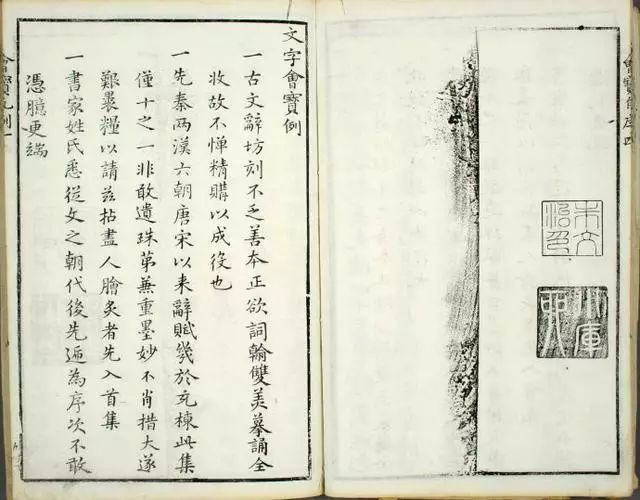 朱文
治印
文字會寶例
一古文辭坊刻不乏善本正欲詞翰雙美摹誦全
收故不憚精購以成役也
一先秦两漢六朝唐宋以来辭賦幾於充棟此集
僅十之一非敢遺珠苐兼重墨妙不肖措大遂
艱裹糧以請茲拈盡人膾炙者先入首集
一書家姓氏悉從文之朝代後先遞為序次不敢
憑臆更端
會寶凡例 一